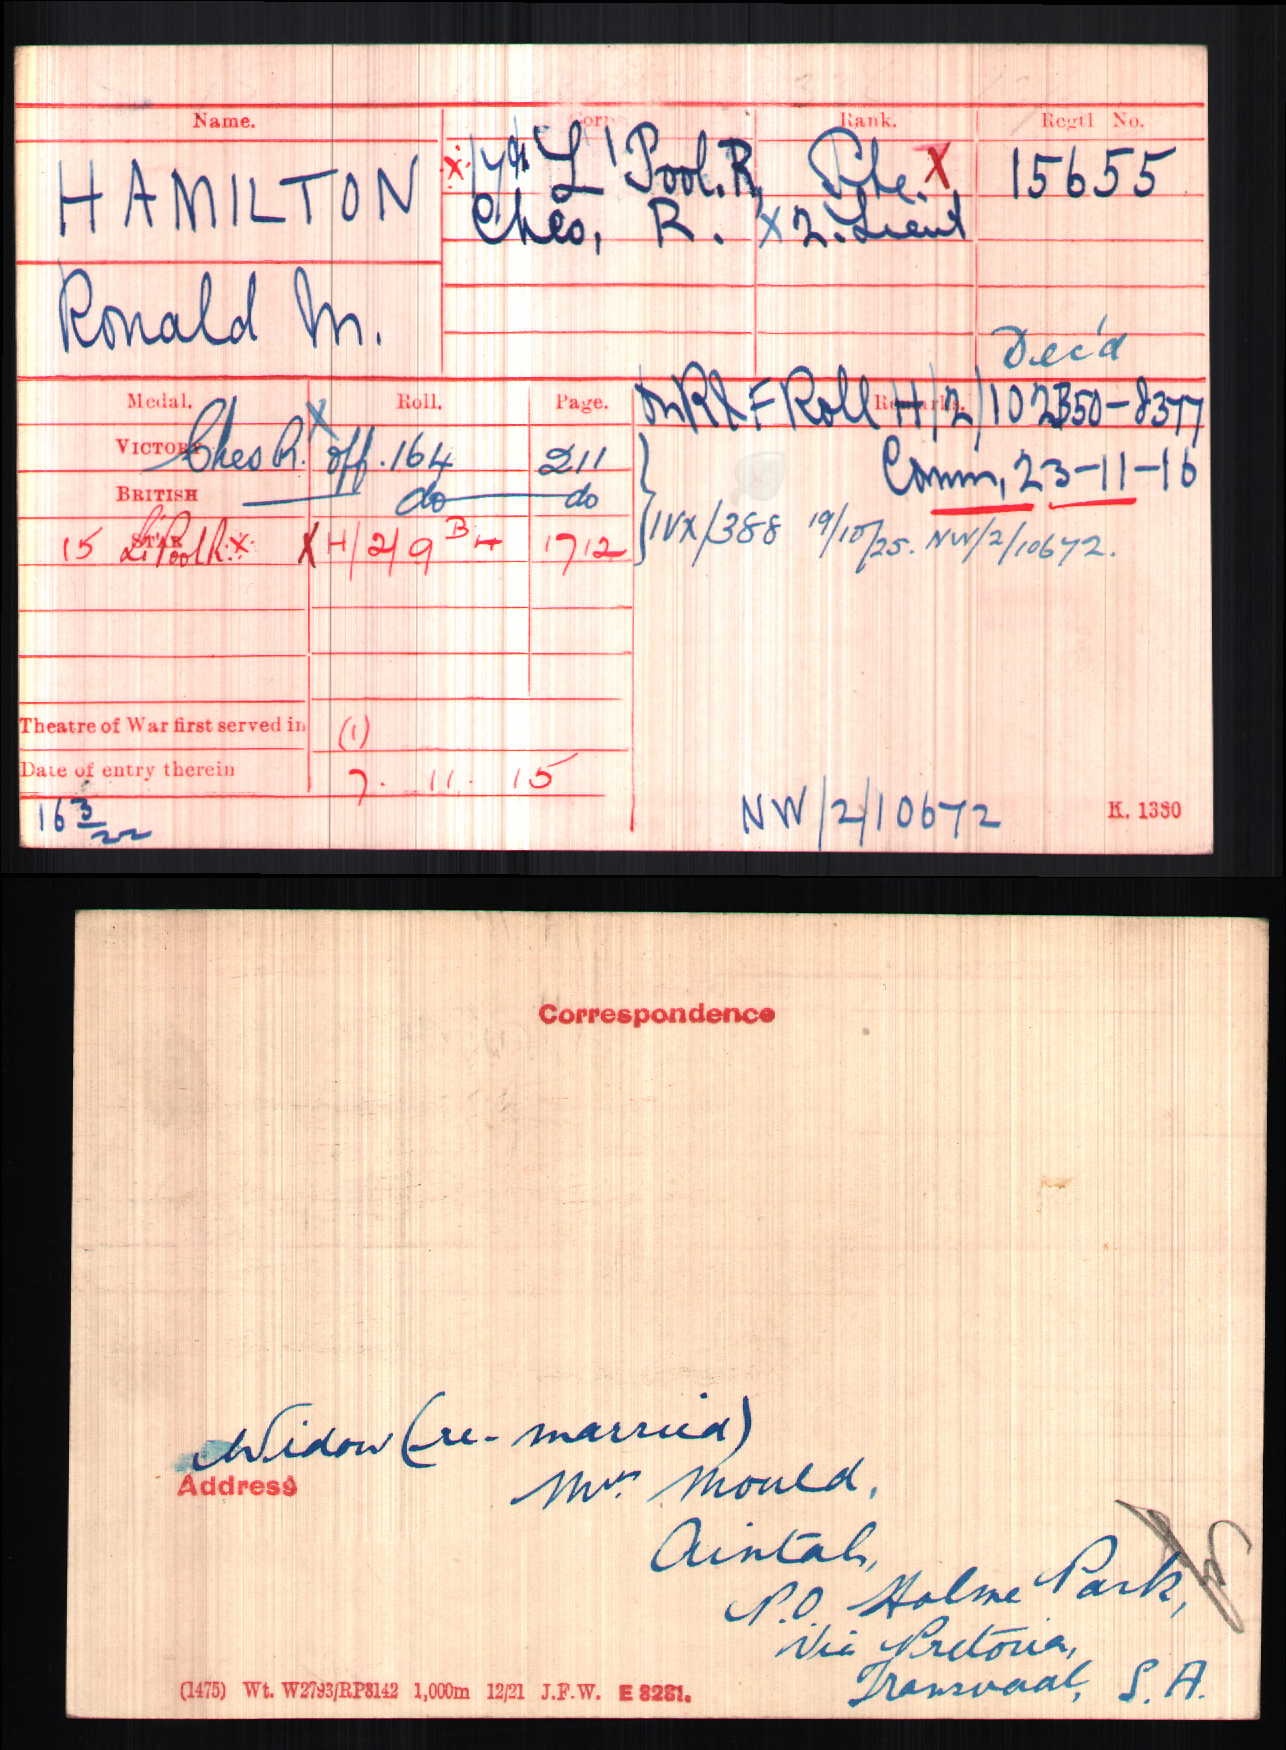 Name. Corps. Rank. Regtl No.
HAMILTON X 17th L'Pool. R. Pte. X 15655
Ches. R. X 2. Lieut
Ronald M.
Dec'd
Medal. Roll. Page. Remarks.
On R & F Roll H/2/102B50-8377
VICTORY Ches R. X off. 164 211
Comm, 23-11-16
BRITISH do do
15 STAR L'Pool R. X X H/2/9 B4 1712
IVX/388 19/10/25. NW/2/10672.
Theatre of War first served in (1)
Date of entry therein 7. 11. 15
16 3/22
NW/2/10672 K. 1380
Correspondence
Widow (re-married)
Address
Mrs Mould,
Aintab,
P.O. Holme Park,
Via Pretoria,
Transvaal, S.A.
(1475) Wt. W2793/RP8142 1,000m 12/21 J.F.W. E 8281.